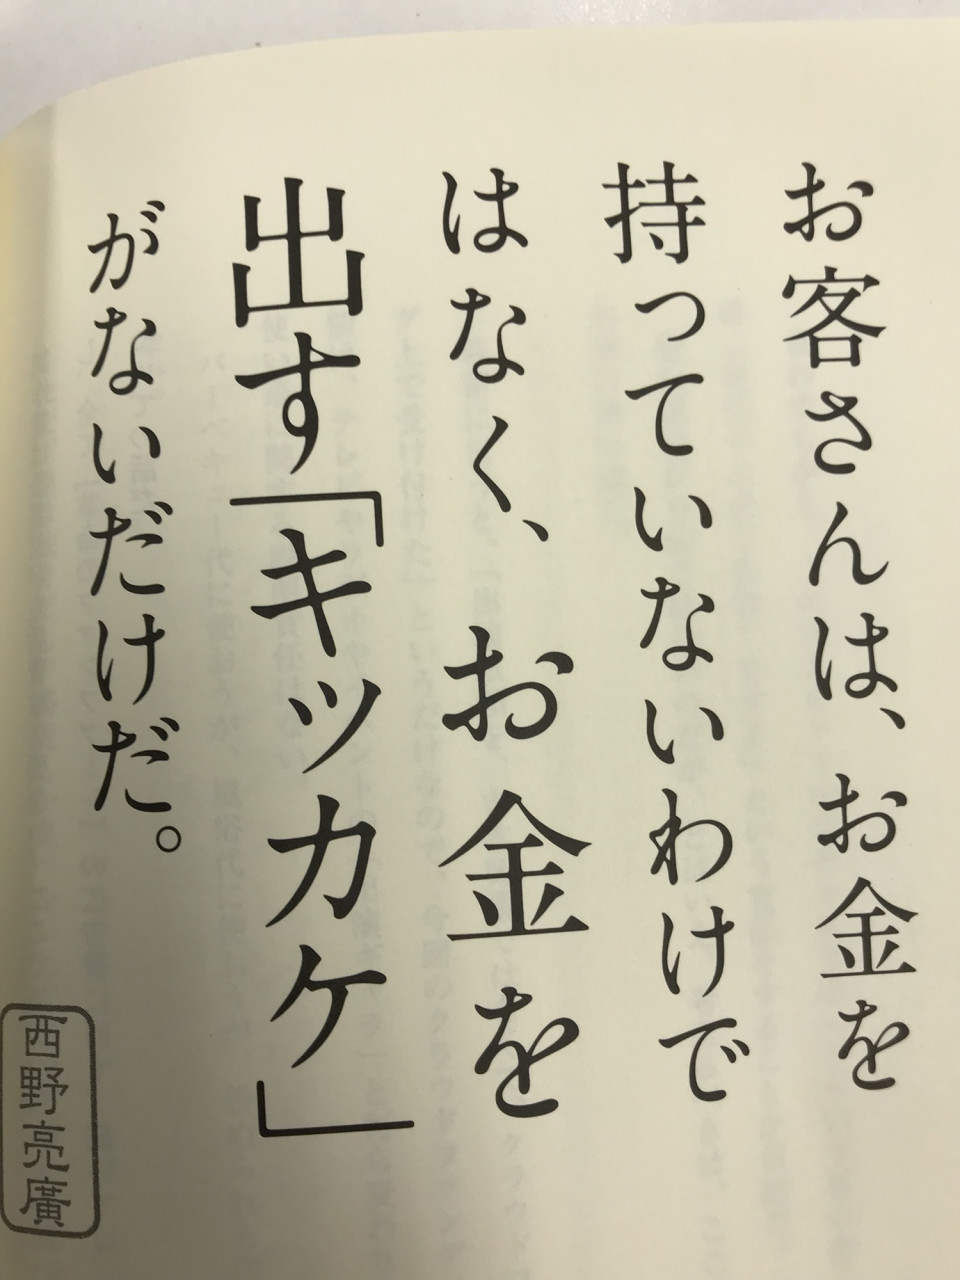 お客さんは、お金を
持っていないわけで
はなく、お金を
出す「キッカケ」
がないだけだ。
西野亮廣